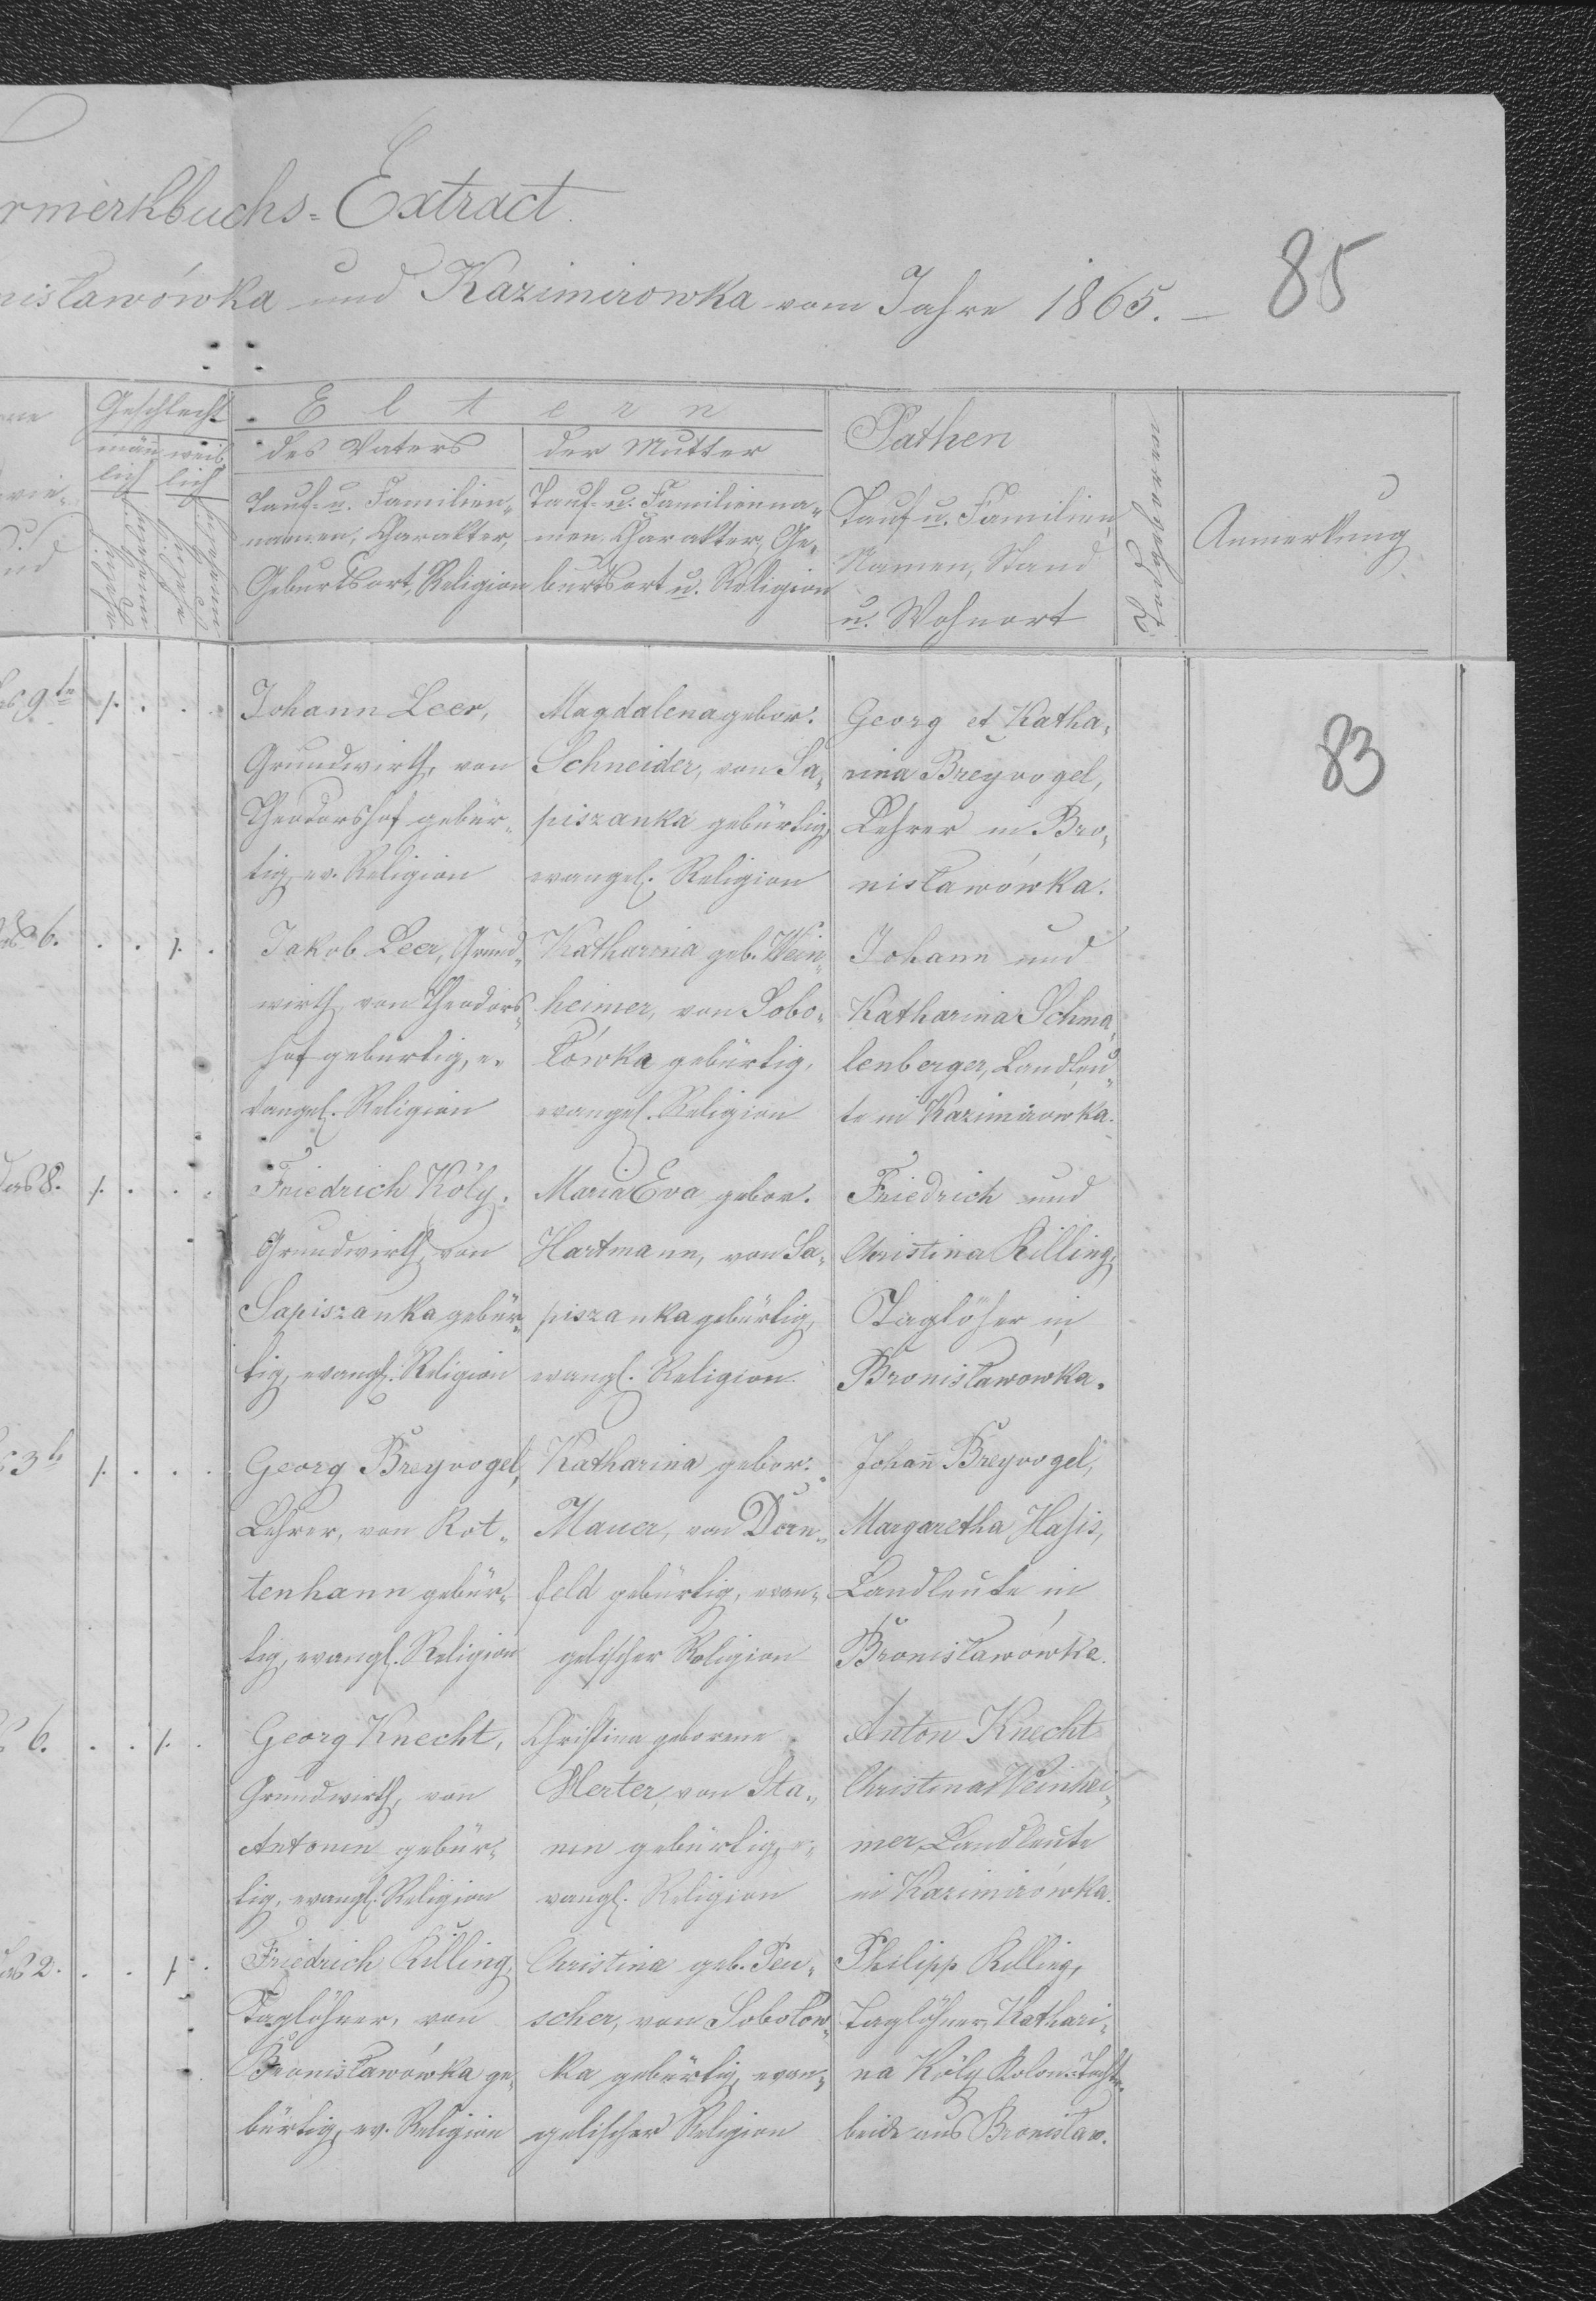 rmerkbuchs=Extract.
nisławówka und Kazimirowka vom Jahre 1865. —
85
Geschlecht
männ
lich
weib
lich
ehelich
unehelich
ehelich
unehelich
Eltern
des Vaters
Tauf- u. Familien-
namen, Charakter,
Geburtsort, Religion
der Mutter
Tauf- u. Familienna-
men Charakter, Ge-
burtsort u. Religion
Pathen
Tauf u. Familien
Namen, Stand
u. Wohnort
Todtgeboren
Anmerkung
83
9te
Johann Leer,
Grundwirth, von
Theodorshof gebür-
tig, ev. Religion
Magdalena gebor.
Schneider, von Sa-
piszanka gebürtig,
evangel. Religion
Georg et Katha-
rina Breyvogel,
Lehrer in Bro-
nisławówka.
6.
Jakob Leer, Grund-
wirth von Theodors-
hof gebürtig, e-
vangel. Religion
Katharina geb. Wein-
heimer, von Sobo-
łówka gebürtig,
evangel. Religion
Johann und
Katharina Schma-
lenberger, Landleu-
te in Kazimirowka.
das 8.
Friedrich Köly,
Grundwirth, von
Sapiszanka gebür-
tig, evangl. Religion
Maria Eva gebor.
Hartmann, von Sa-
piszanka gebürtig,
evangl. Religion.
Friedrich und
Christina Killing,
Taglöher in
Bronisławowka.
3te
Georg Breyvogel,
Lehrer, von Rot-
tenhann gebür-
tig, evangl. Religion
Katharina gebor.
Mauer, von Dorn-
feld gebürtig, evan-
gelischer Religion
Johann Breyvogel,
Margaretha Hasis,
Landleute in
Bronisławówka.
6.
Georg Knecht,
Grundwirth, von
Antonin gebür-
tig, evangl. Religion
Christina geborene
Merter, von Sta-
nin gebürtig, e-
vangl. Religion
Anton Knecht
Christina Weinhei-
mer, Landleute
in Kazimirówka.
2.
Friedrich Killing,
Taglöhner, von
Bronisławówka ge-
bürtig, ev. Religion
Christina geb. Peu-
scher, von Sobołow-
ka gebürtig, evan-
gelischer Religion
Philipp Killing,
Taglöhner, Kathari-
na Köly Kolon. Tocht.
beide aus Bronisław.